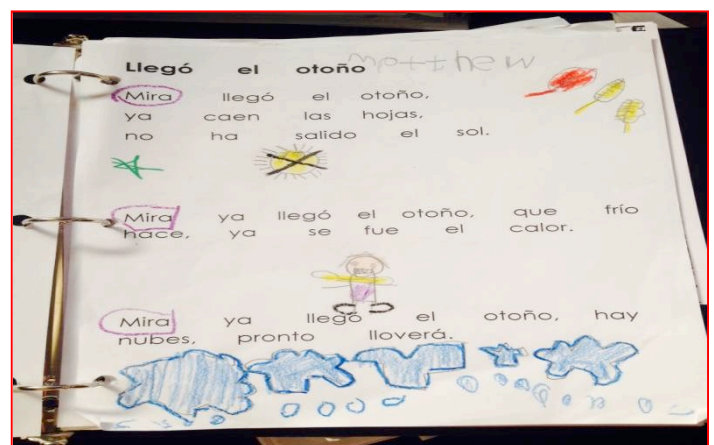 Llegó el otoño
Matthew
Mira llegó el otoño,
ya caen las hojas,
no ha salido el sol.
Mira ya llegó el otoño, que frío
hace, ya se fue el calor.
Mira ya llegó el otoño, hay
nubes, pronto lloverá.